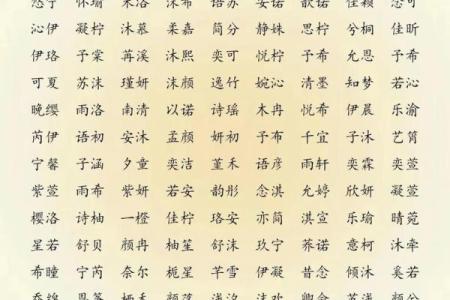 怀瑜 沐洛 佳颖
沁伊 凝柠 沐慕 柔嘉 简分 静姝 思柠 兮桐 佳昕
伊珞 子棠 苒溪 沐熙 奕可 悦柠 予希 允恩 予希
可夏 苏沫 瑾妍 沫颜 逸竹 婉沁 清墨 知梦 若沁
晚缨 雨洛 南清 以诺 诗瑶 木冉 悦希 伊晨 乐渝
芮伊 语初 安沐 孟颜 妍初 予布 千宜 子沐 艺筲
宁馨 子涵 夕童 奕洁 堇禾 语彦 雨轩 奕霖 奕萱
紫萱 雨希 紫妍 若安 韵彤 念淇 允婷 欣妍 凝萱
樱洛 诗柚 一橙 佳柠 珞安 亦简 淇宣 乐瑜 晴菀
星若 舒贝 颜冉 柚笙 舒沫 玖宁 荞诺 意柯 沐牵
希瞳 宁芮 奈尔 栀星 芊雪 伊凝 昔念 倾沐 奚若